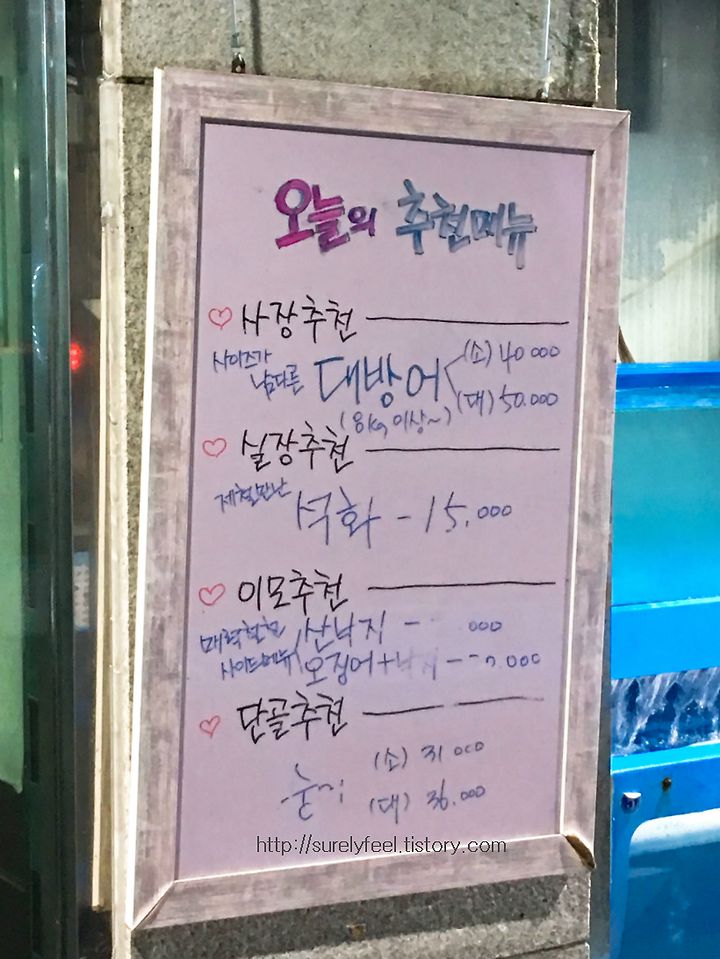 오늘의 추천메뉴
♡ 사장추천
사이즈가 남다른 대방어 (소) 40 000
(대) 50.000
(8kg 이상~)
♡ 실장추천
제철만난 석화 - 15.000
♡ 이모추천
매력철철 산낙지 - 000
사이드메뉴 오징어+낙지 -- 000
♡ 단골추천
(소) 31 000
(대) 36.000
http://surelyfeel.tistory.com